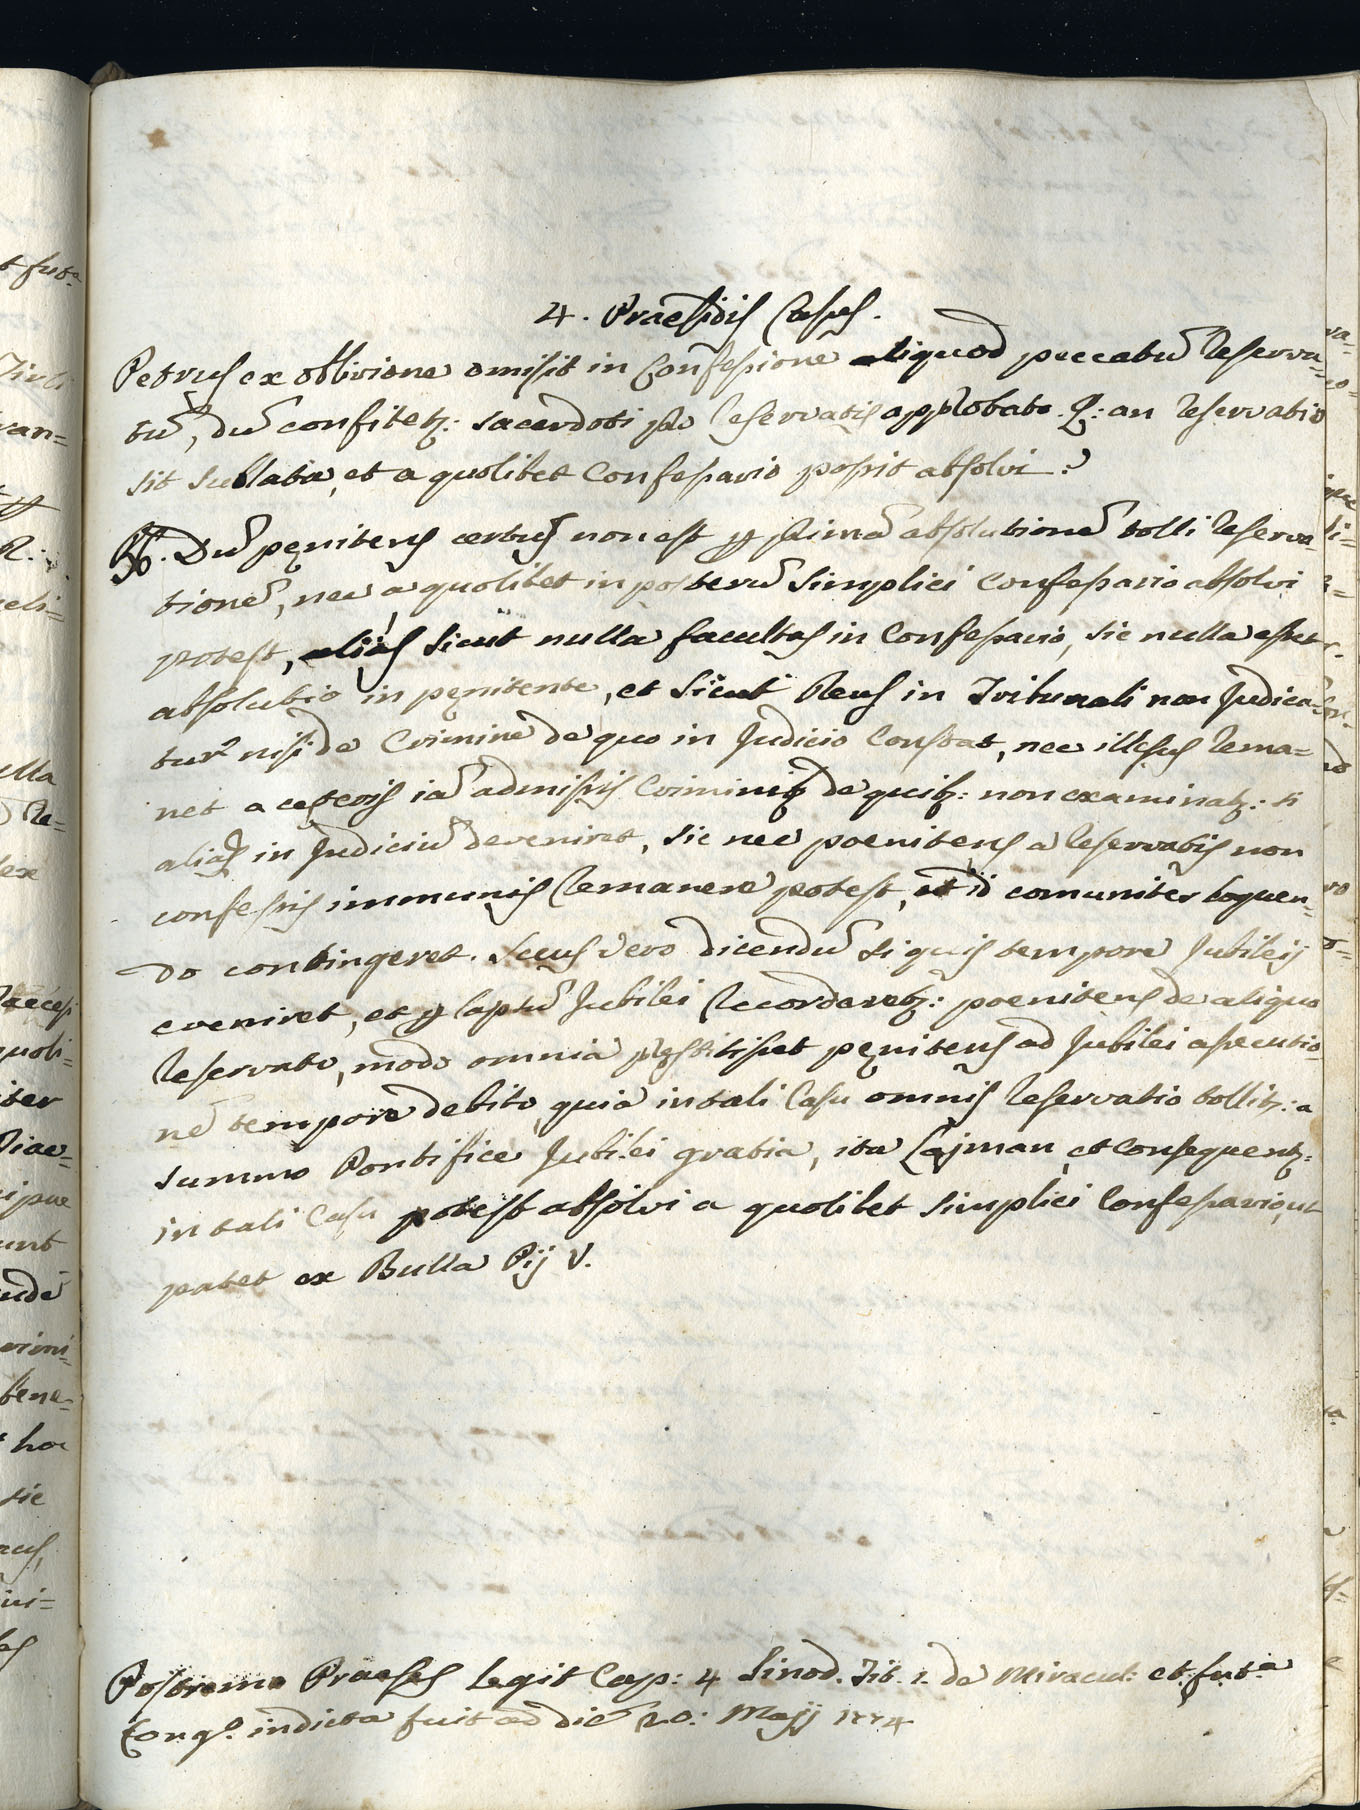 4. Praesidis Casus.
Petrus ex oblivione omisit in Confessione aliquod peccatũ reserva=
tũ, dũ confitetʒ: sacerdoti pro reservatis approbato. Q: an reservatio
sit sublata, et a quolibet Confessario possit absolvi?
R. Dũ pęnitens certus non est p primã absolutionẽ tolli reserva=
tionẽ, nec a quolibet in posterũ simplici Confessario absolvi
potest, aliàs sicut nulla facultas in Confessario, sic nulla esset
absolutio in pęnitente, et sicut Reus in Tribunali non Judica=
tur nisi de Crimine de quo in Judicio Constat, nec illesus rema=
net a cęteris iã admissis Criminibʒ de quibʒ: non examinatʒ: si
alias in Judiciũ deveniret, sic nec poenitens a reservatis non
confessis immunis remanere potest, et id comuniter loquen=
do contingeret. Secus vero dicendũ si quis tempore Jubileij
eveniret, et p lapsũ Jubilei recordaretʒ: poenitens de aliquo
reservato, modo omnia pręstitisset pęnitens ad Jubilei assecutio=
nẽ tempore debito, quia in tali Casu omnis reservatio tollitʒ: a
summo Pontifice Jubilei gratia, ita Lajman, et Consequentʒ:
in tali Casu potest absolvi a quolibet simplici Confessario, ut
patet ex Bulla Pij V.
Postremo Praeses legit Cap: 4 Sinod. Tit. 1. de Miracul: et fut.ᵃ
Cong.º indicta fuit ad diẽ 20: Maij 1774